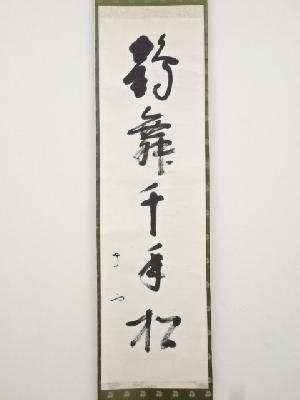 鶴舞千年松